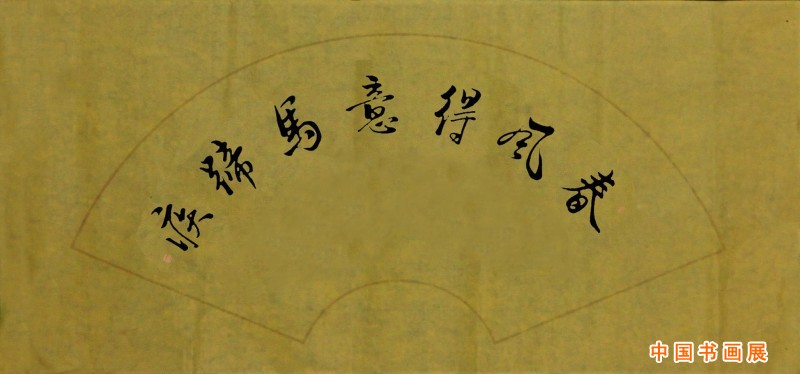 春风得意馬蹄疾
中国书画展